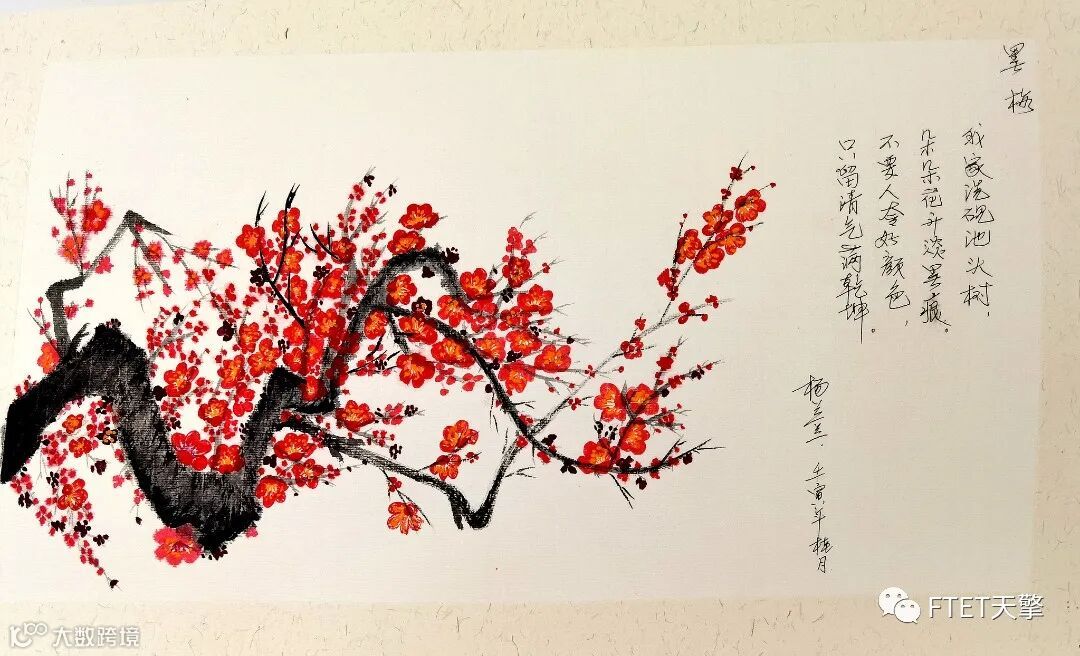 墨梅
我家洗砚池头树，
朵朵花开淡墨痕。
不要人夸好颜色，
只留清气满乾坤。
杨兰兰 壬寅年桂月
FTET天擎
大数跨境